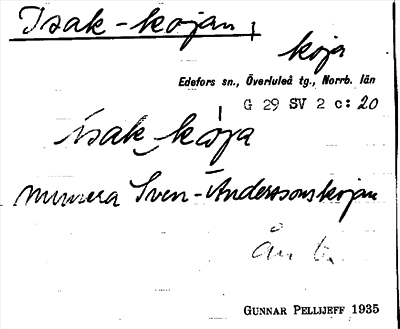 Isak-kojan,
koja
Edefors sn., Överluleå tg., Norrb. län
G 29 SV 2 c: 20
isak kòja
numera Sven-Anderssonskojan
GUNNAR PELLIJEFF 1935